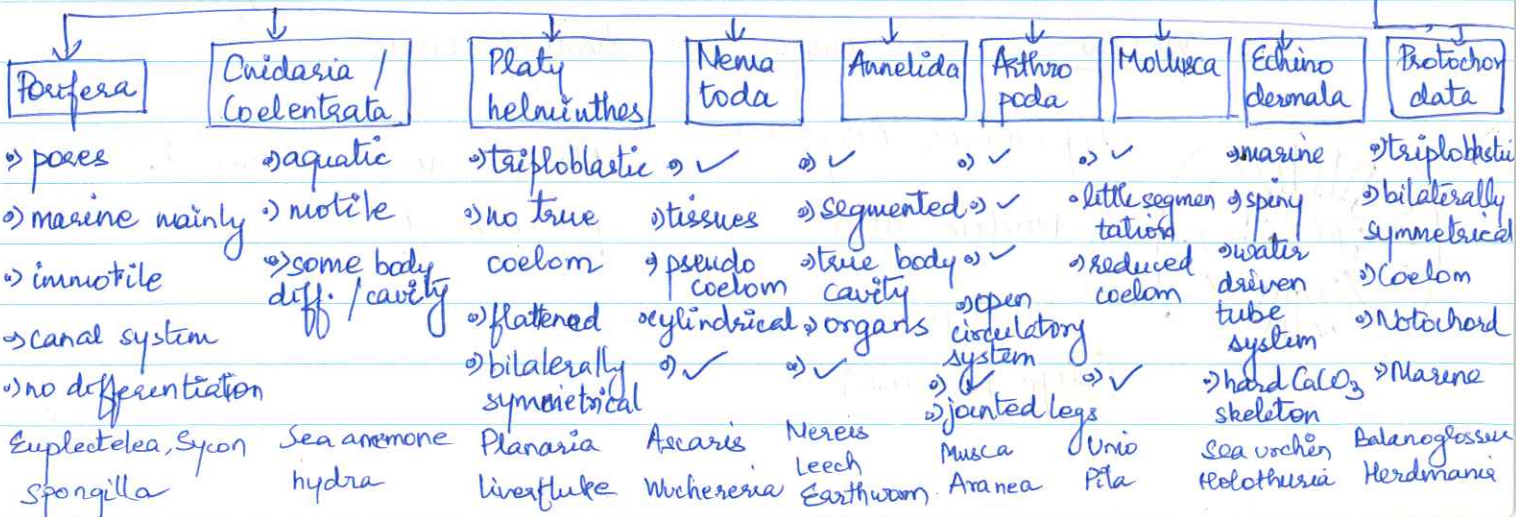 Porifera
•) pores
•) marine mainly
•) immotile
•) canal system
•) no differentiation
Euplectelea, Sycon
Spongilla
Cnidaria /
Coelentrata
•) aquatic
•) motile
•) some body
diff. / cavity
Sea anemone
hydra
Platy
helminthes
•) triploblastic
•) no true
coelom
•) flattened
•) bilaterally
symmetrical
Planaria
liverfluke
Nema
toda
•) ✓
•) tissues
•) pseudo
coelom
•) cylindrical
•) ✓
Ascaris
Wuchereria
Annelida
•) ✓
•) segmented
•) true body
cavity
•) organs
•) ✓
Nereis
Leech
Earthworm
Arthro
poda
•) ✓
•) ✓
•) ✓
•) open
circulatory
system
•) ✓
•) jointed legs
Musca
Aranea
Mollusca
•) ✓
• little segmen
tation
•) reduced
coelom
•) ✓
Unio
Pila
Echino
dermala
•) marine
•) spiny
•) water
driven
tube
system
•) hard CaCO3
skeleton
Sea urchin
Holothuria
Protochor
data
•) triploblastic
•) bilaterally
symmetrical
•) Coelom
•) Notochord
•) Marine
Balanoglossus
Herdmania